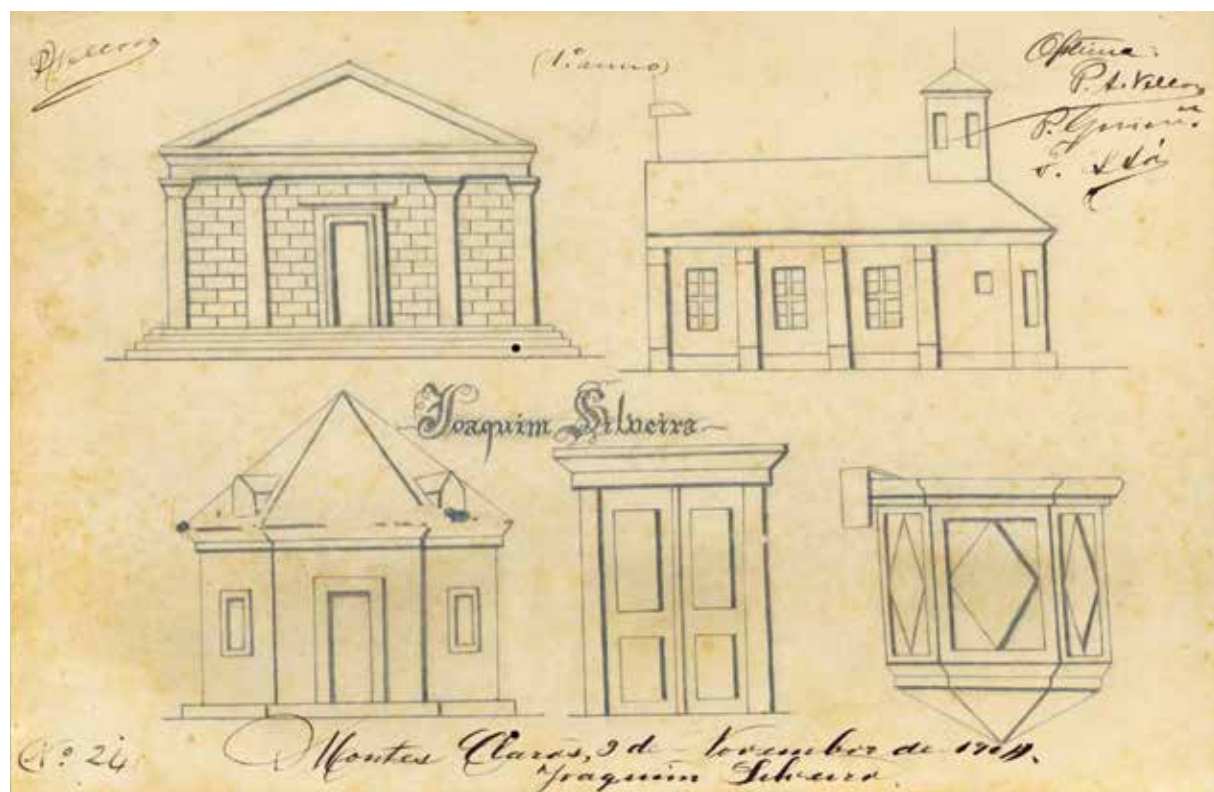 PVelloso
(1º anno)
Optima:
P. A. Velloso
P.
Joaquim Silveira
Nº 24
Montes Claros, 9 de Novembro de
Joaquim Silveira.